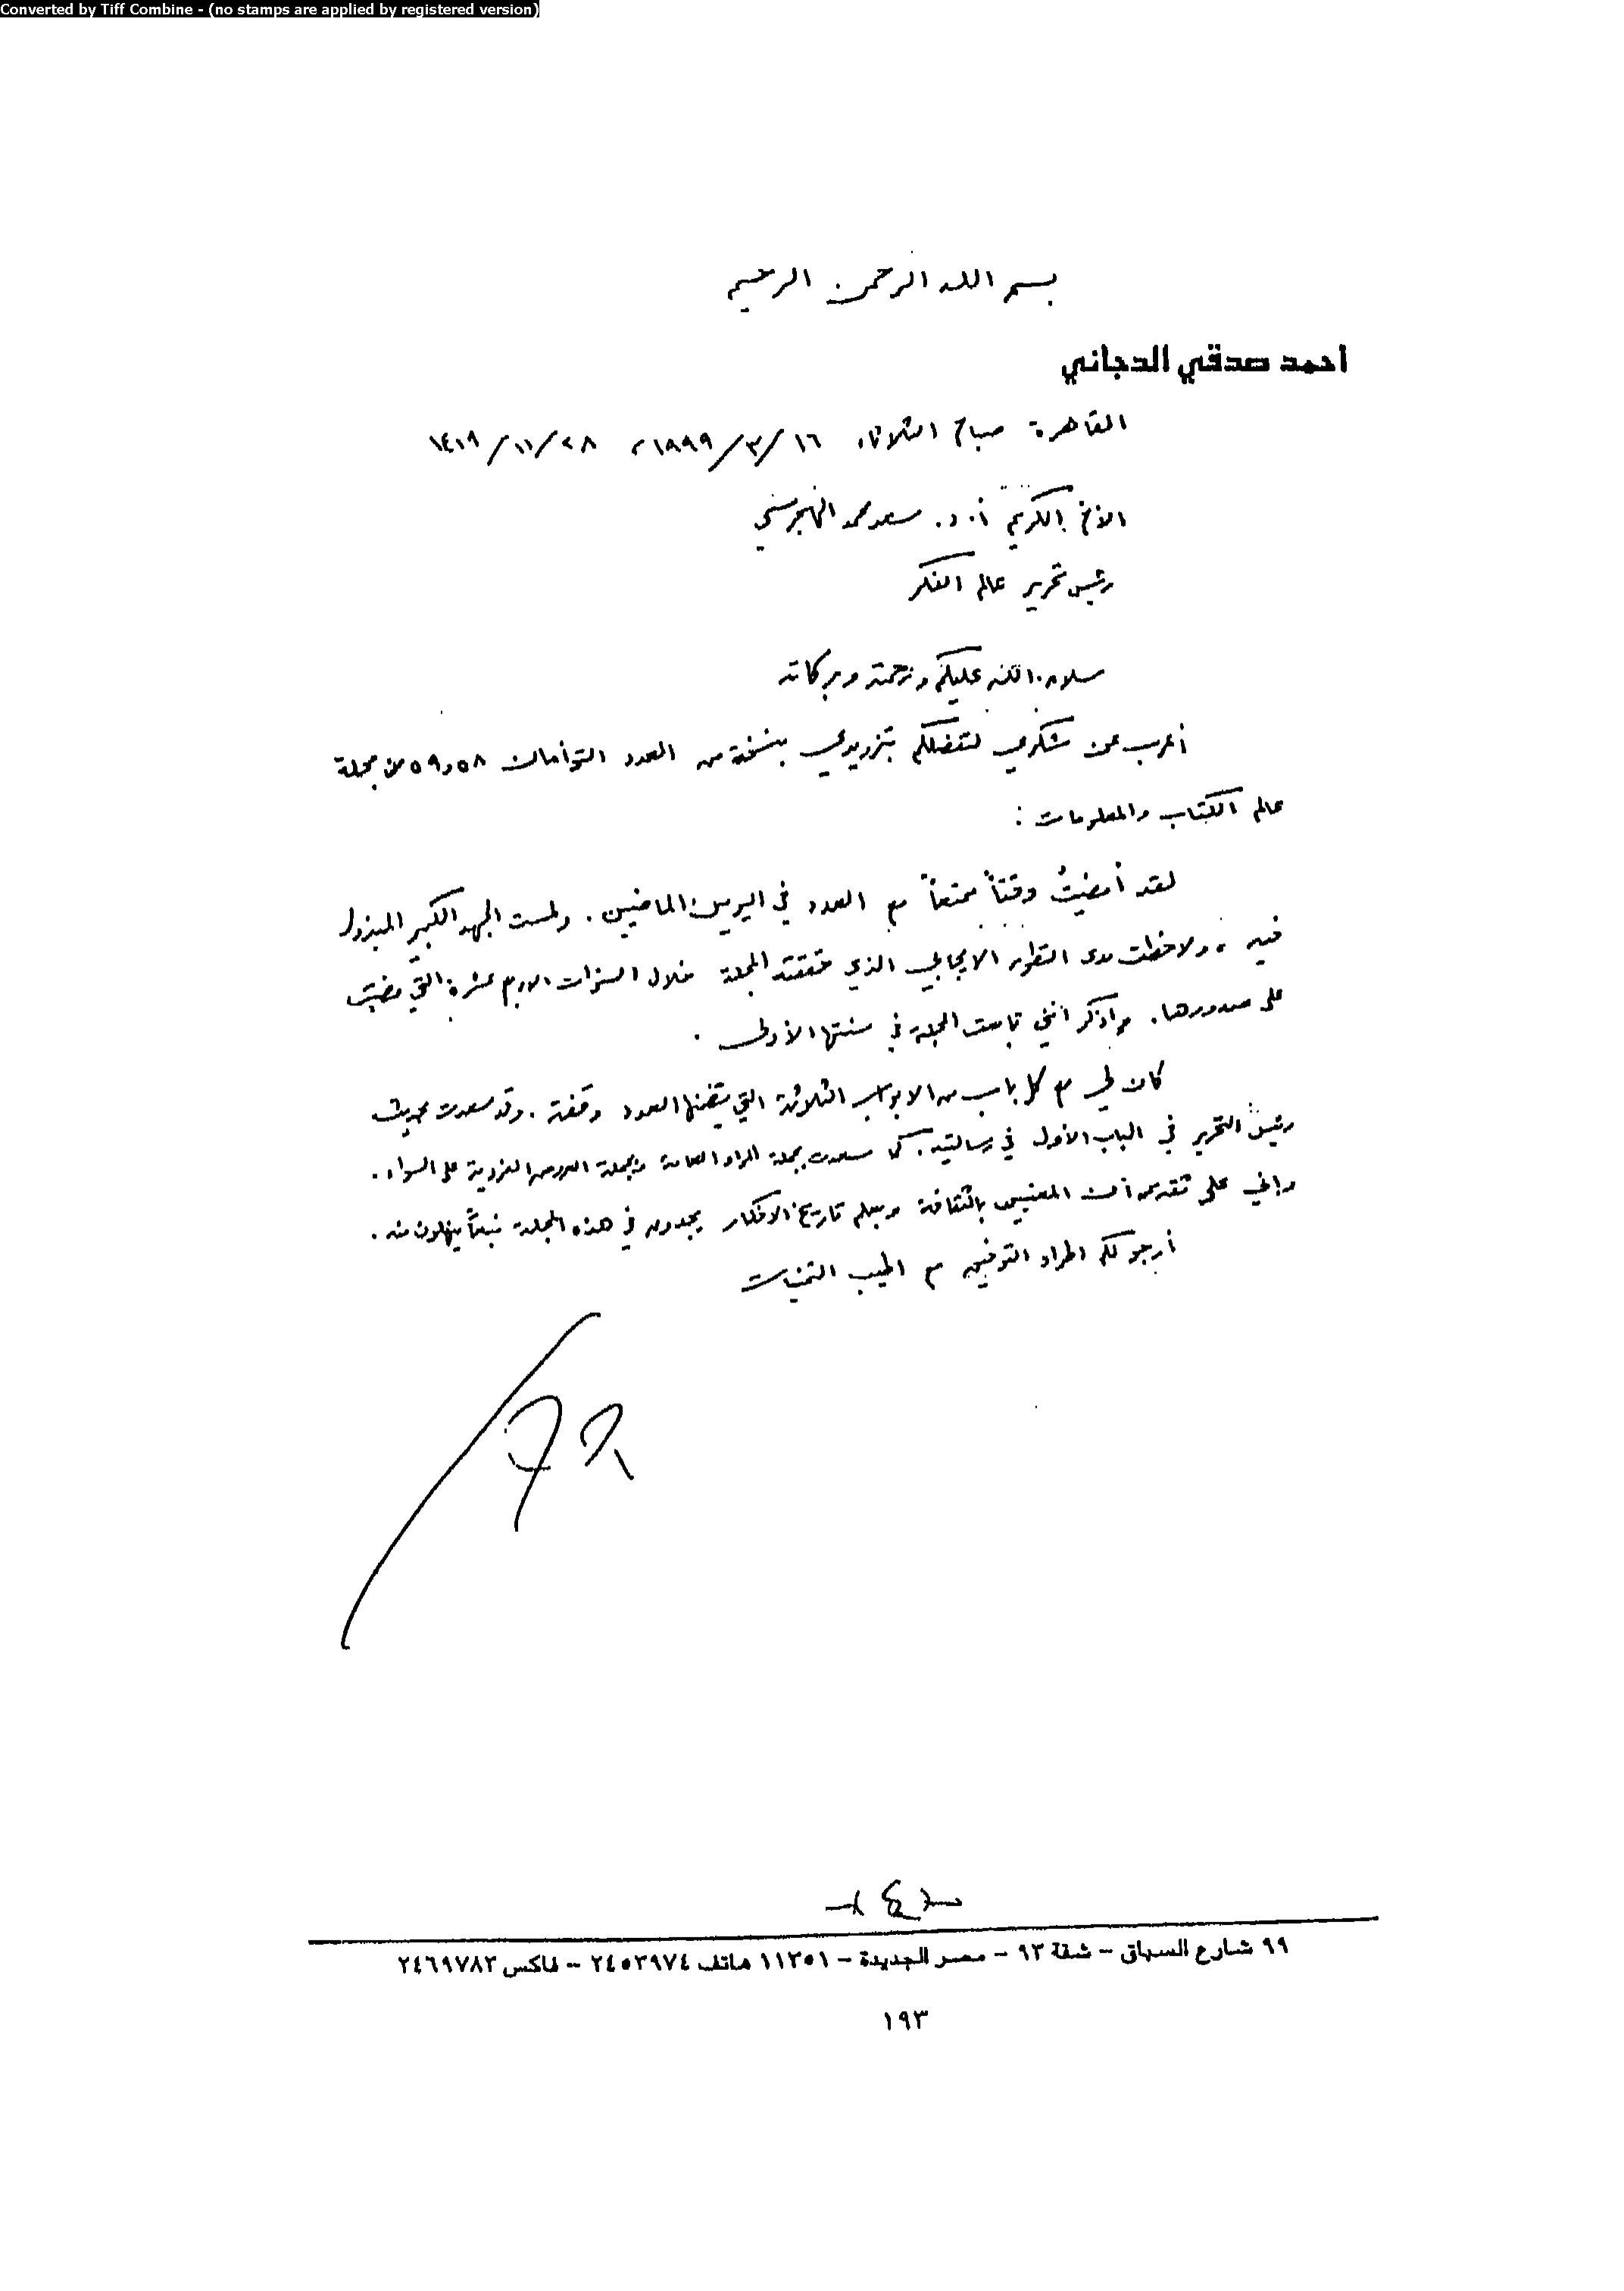 Converted by Tiff Combine - (no stamps are applied by registered version)
بسم الله الرحمن الرحيم
أحمد صدقي الدجاني
القاهرة صباح الثلاثاء ١٦/٣/١٩٩٩، ٢٨/١١/١٤١٩
الأخ الكريم أ. د. سعد محمد الهجرسي
رئيس تحرير عالم الفكر
سلام الله عليكم ورحمته وبركاته
أعرب عن شكري لتفضلكم بتزويدي بنسخة من العدد التوأمان ٥٨ و ٥٩ من مجلة
عالم الكتاب والمعلومات :
لقد أمضيتُ وقتاً ممتعاً مع العدد في اليومين الماضيين . ولمست الجهد الكبير المبذول
فيه ، ولاحظت مدى التطور الايجابي الذي حققته المجلة خلال السنوات الاربع عشرة التي مضت
على صدورها . وأذكر أنني تابعت المجلة في سنتها الأولى .
كان لي مع كل باب من الابواب الثلاثة التي يتضمنها العدد وقفة . وقد سعدت بحديث
رئيس التحرير في الباب الأول في رسالتيه . كما سعدت بجملة المواد العامة وبجملة العروض الفردية على السواء .
واني على تقدير أن المعنيين بالثقافة وبعلم تاريخ الافكار يجدون في هذه المجلة نبعاً ينهلون منه .
أرجو لكم اطراد التوفيق مع اطيب التمنيات
-{ ٤ }-
٩٩ شارع السباق - شقة ٩٣ - مصر الجديدة - ١١٣٥١ هاتف ٢٤٥٣٩٧٤ - فاكس ٢٤٦٩٧٨٣
١٩٣